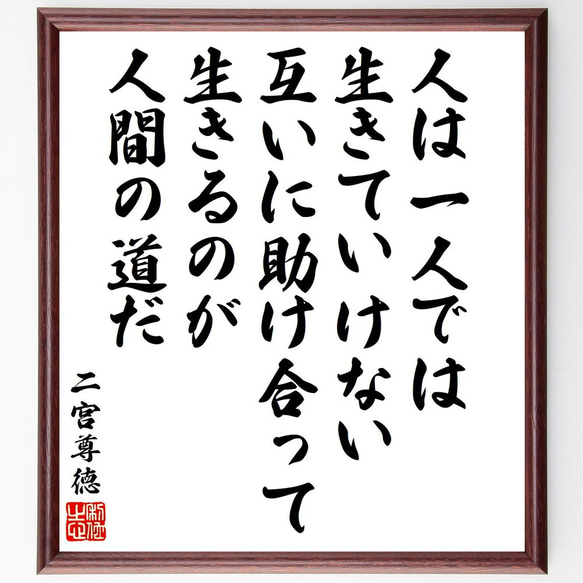 人は一人では
生きていけない
互いに助け合って
生きるのが
人間の道だ
二宮尊徳